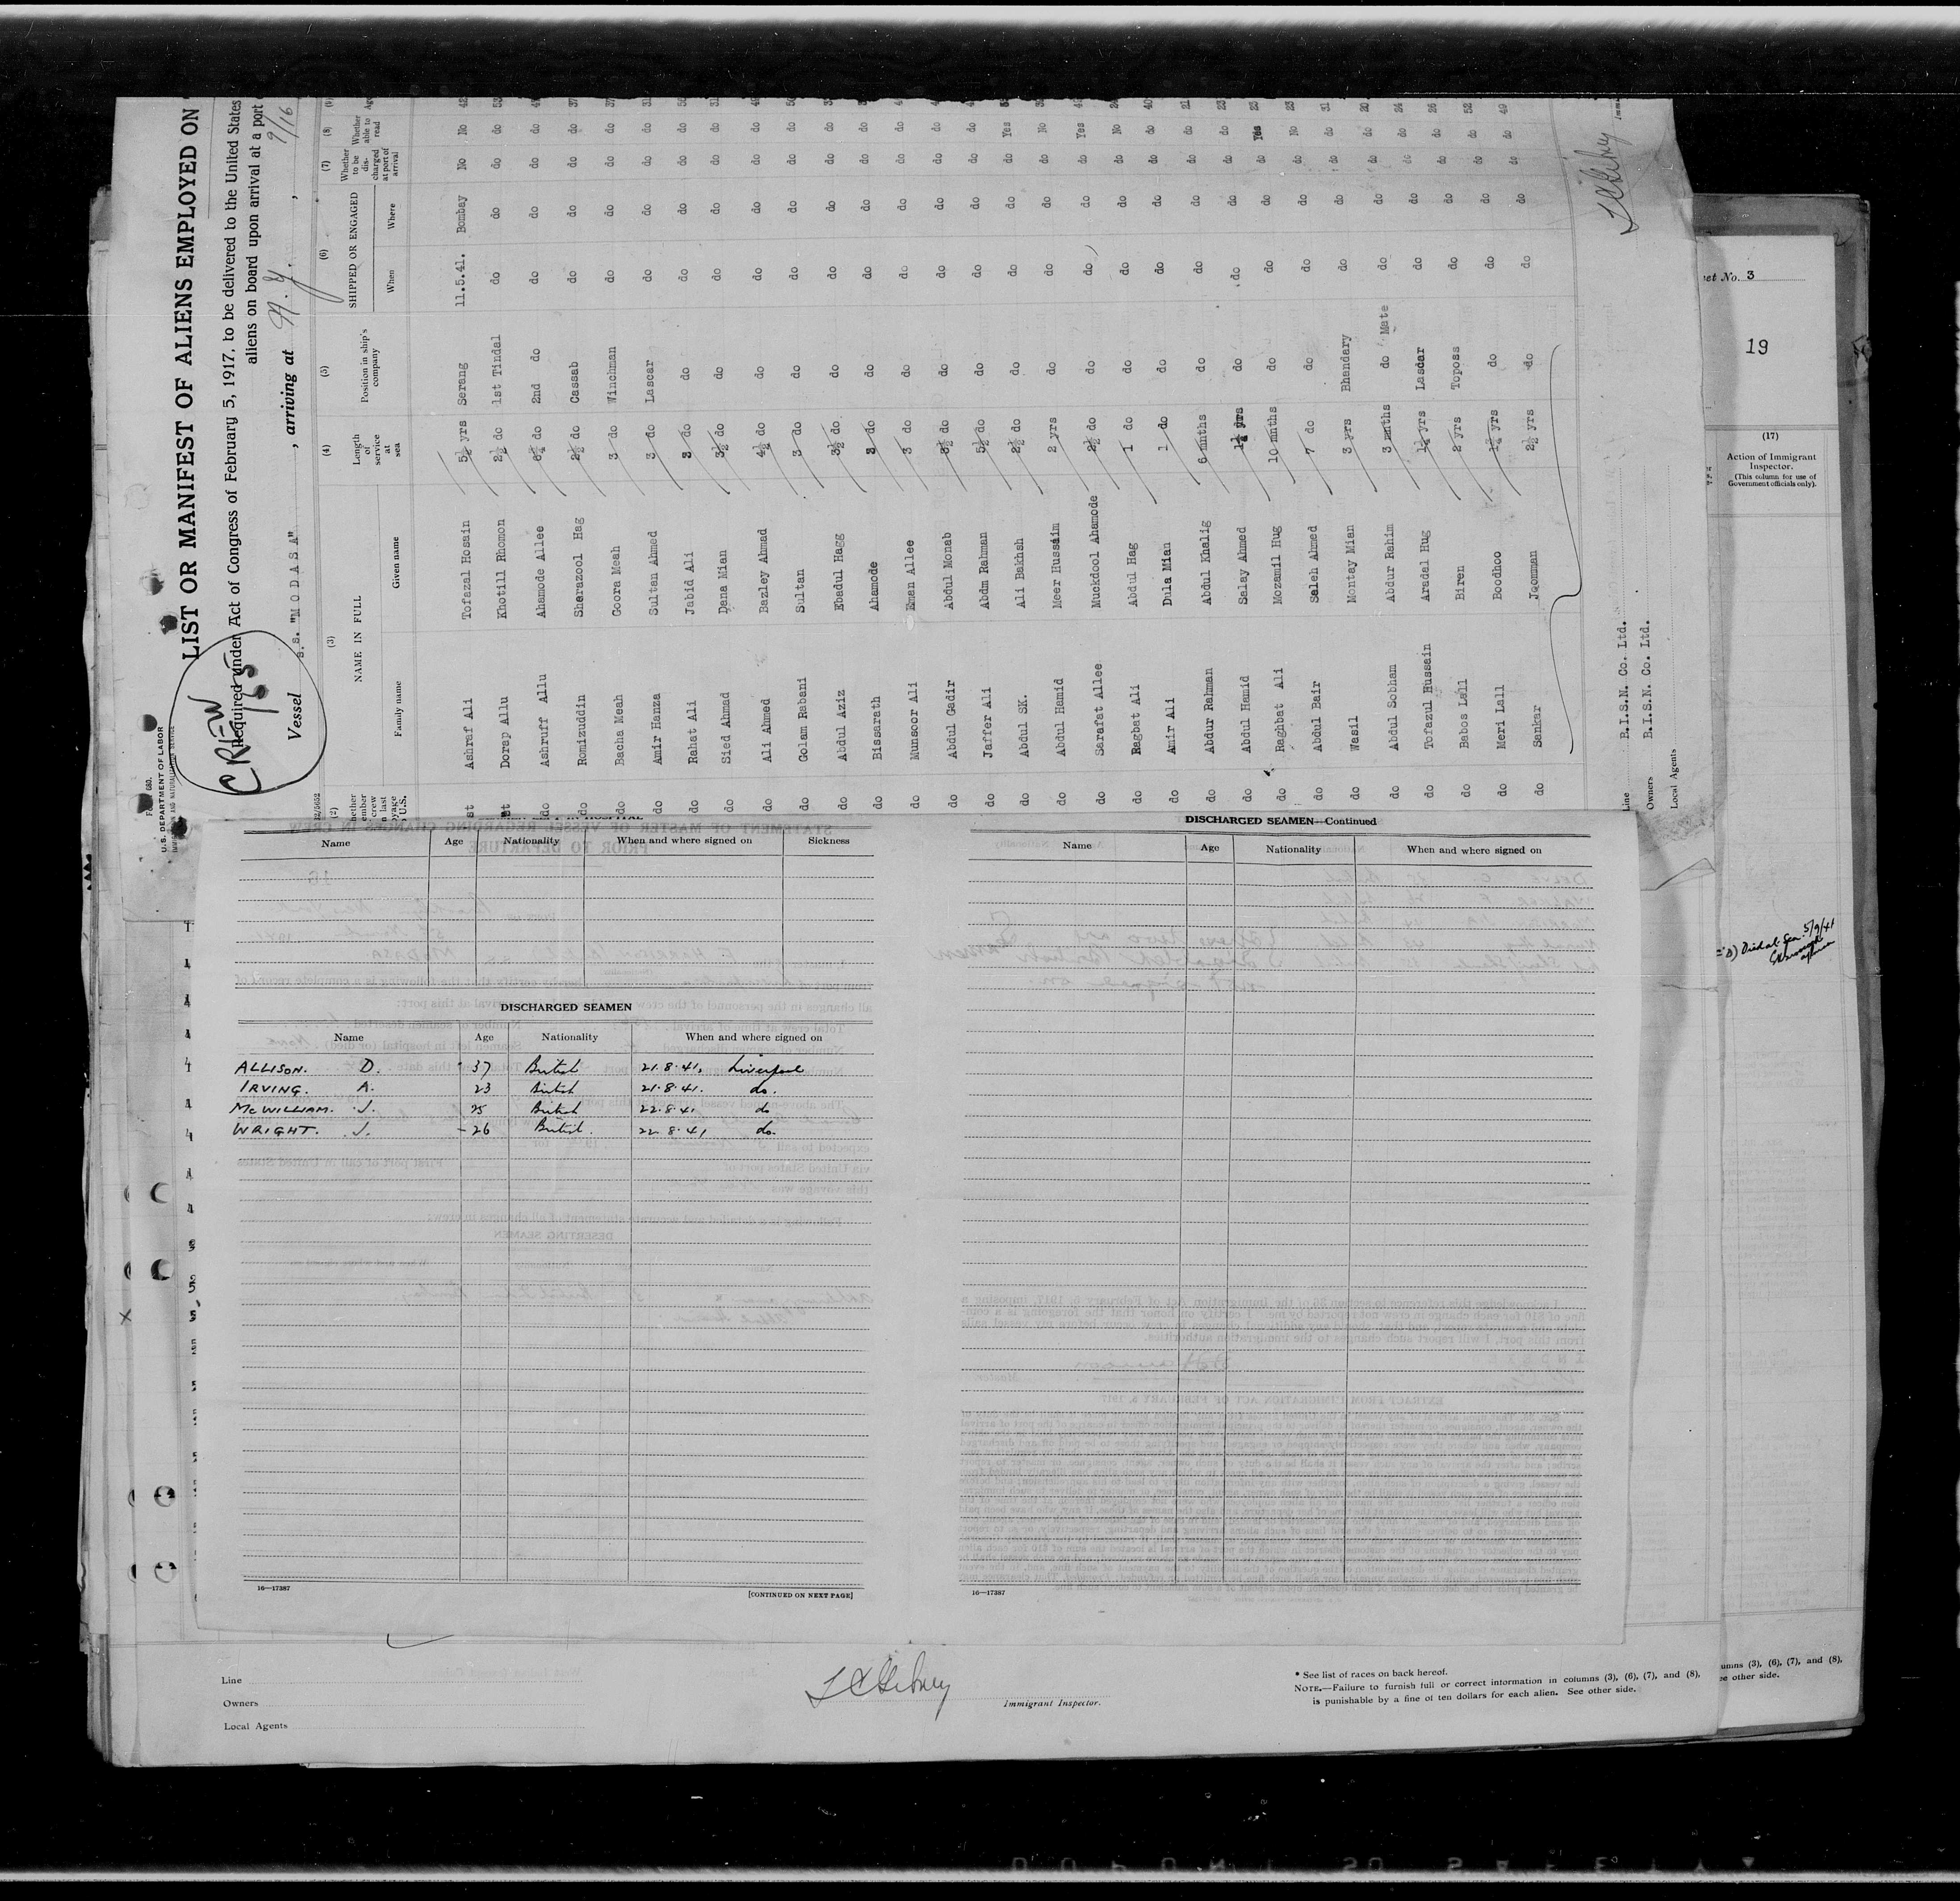 Form 680.
U. S. DEPARTMENT OF LABOR
IMMIGRATION AND NATURALIZATION SERVICE
CREW
LIST OR MANIFEST OF ALIENS EMPLOYED ON
Required under Act of Congress of February 5, 1917, to be delivered to the United States
aliens on board upon arrival at a port
Vessel S.S. "MODASA" , arriving at N. Y. , 9/16
(2) (3) NAME IN FULL (4) Length of service at sea (5) Position in ship's company (6) SHIPPED OR ENGAGED (7) Whether to be discharged at port of arrival (8) Whether able to read
Family name Given name When Where
st Ashraf Ali Tofazal Hosain 5½ yrs Serang 11.5.41. Bombay No No 42
st Dorap Allu Khotill Rhomon 2½ do 1st Tindal do do do do 53
do Ashruff Allu Ahamode Allee do 2nd do do do do do
do Romizuddin Sharazool Hag 2½ do Cassab do do do do 37
do Bacha Meah Goora Meah 3 do Winchman do do do do 37
do Amir Hanza Sultan Ahmed 3 do Lascar do do do do 31
do Rahat Ali Jabid Ali 3 do do do do do do
do Sied Ahmad Dana Mian 3½ do do do do do do 31
do Ali Ahmed Bazley Ahmad 4½ do do do do do do
do Golam Rabani Sultan 3 do do do do do do
do Abdul Aziz Ebadul Hagg 3½ do do do do do do
do Bissarath Ahamode 3 do do do do do do
do Munsoor Ali Eman Allee 3 do do do do do do
do Abdul Gadir Abdul Monab 3½ do do do do do do
do Jaffer Ali Abdm Rahman 5½ do do do do do do
do Abdul SK. Ali Bakhsh 2½ do do do do do Yes
do Abdul Hamid Meer Hussain 2 yrs do do do do No
do Sarafat Allee Muckdool Ahamode 2½ do do do do do Yes
do Ragbat Ali Abdul Hag 1 do do do do do No
do Amir Ali Dula Mian 1 do do do do do do 40
do Abdur Rahman Abdul Khalig 6 mnths do do do do do 21
do Abdul Hamid Salay Ahmed 1¼ yrs do do do do do 23
do Raghbat Ali Mozamil Hug 10 mnths do do do do Yes 23
do Abdul Bair Saleh Ahmed 7 do do do do do No 23
do Wasil Montay Mian 3 yrs Bhandary do do do do 31
do Abdul Sobham Abdur Rahim 3 mnths do Mate do do do do 20
do Tofazul Hussain Aradal Hug 1½ yrs Lascar do do do do 24
do Babos Lall Biren 2 yrs Toposs do do do do 26
do Meri Lall Boodhoo 1¼ yrs do do do do do 52
do Sankar Jgomman 2½ yrs do do do do do 49
Line B.I.S.N. Co. Ltd.
Owners B.I.S.N. Co. Ltd.
Local Agents
No. 3
19
(17)
Action of Immigrant
Inspector.
(This column for use of
Government officials only).
Died at Sea 5/9/41
Name Age Nationality When and where signed on Sickness
DISCHARGED SEAMEN
Name Age Nationality When and where signed on
ALLISON. D. 37 British 21.8.41, Liverpool
IRVING. A. 23 British 21.8.41. do.
McWILLIAM. J. 25 British 22.8.41 do
WRIGHT. J. 26 British. 22.8.41 do.
16—17387 [CONTINUED ON NEXT PAGE]
DISCHARGED SEAMEN—Continued
Name Age Nationality When and where signed on
16—17387
Line
Owners
Local Agents
Immigrant Inspector.
* See list of races on back hereof.
NOTE.—Failure to furnish full or correct information in columns (3), (6), (7), and (8),
is punishable by a fine of ten dollars for each alien. See other side.
umns (3), (6), (7), and (8),
ee other side.